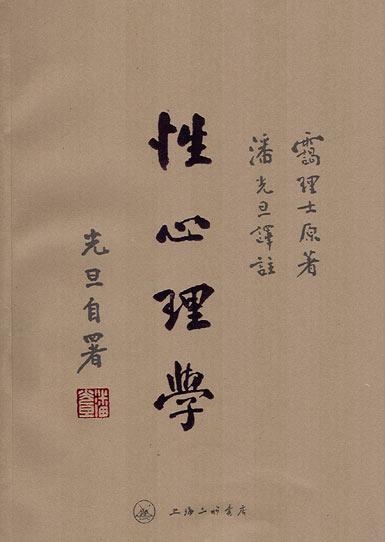 靄理士原著
潘光旦譯註
性心理學
光旦自署
上海三联书店